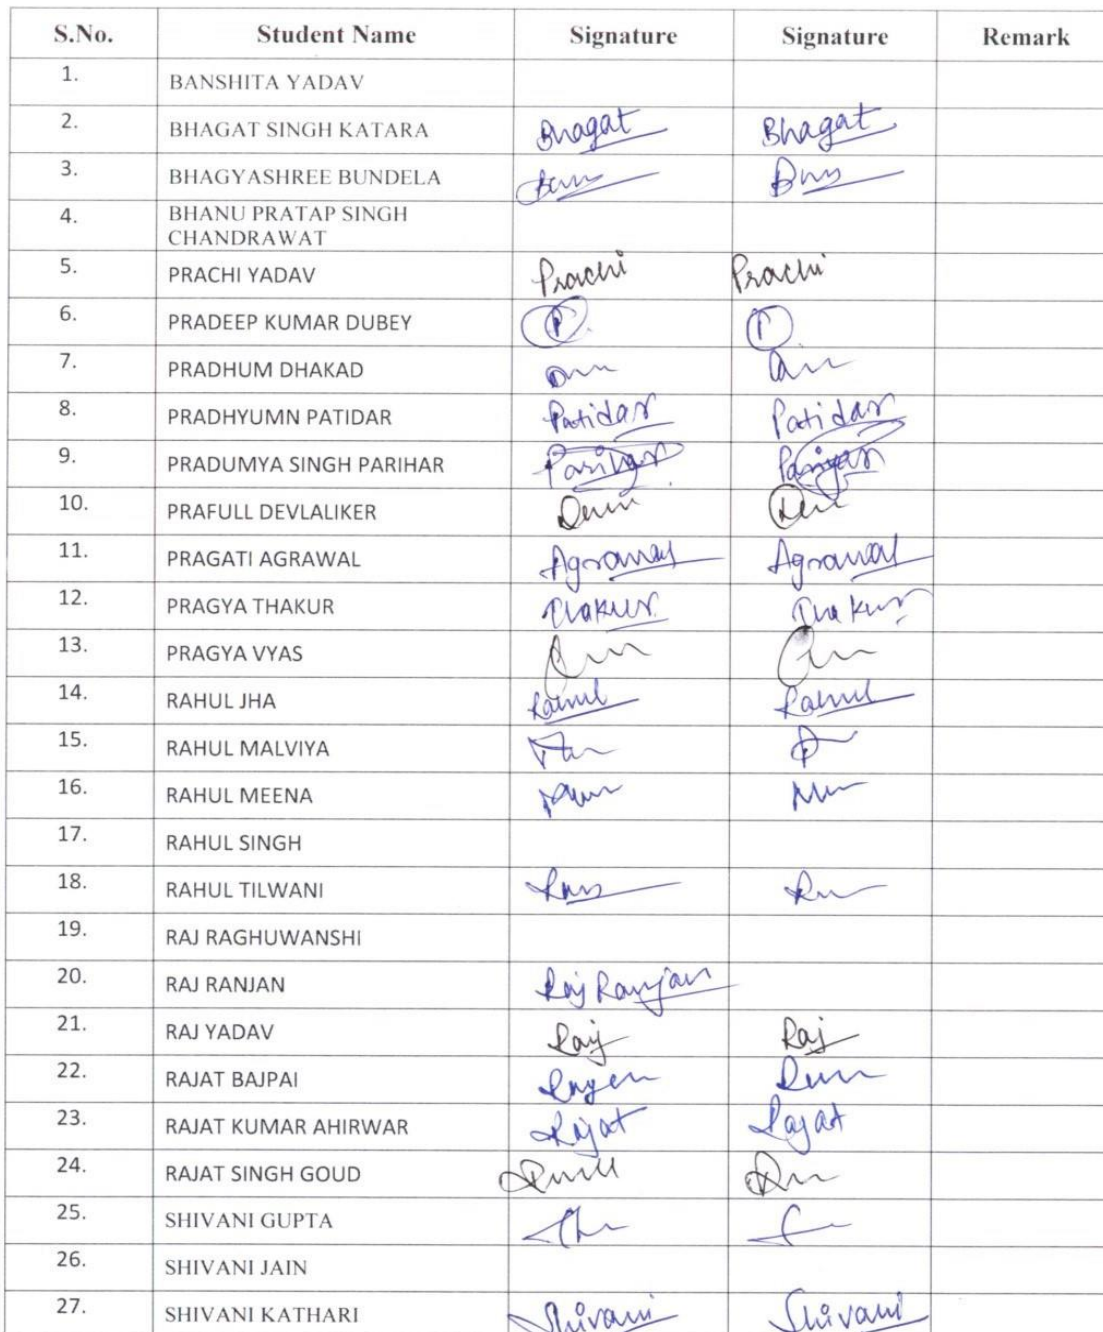 S.No. Student Name Signature Signature Remark
1. BANSHITA YADAV
2. BHAGAT SINGH KATARA Bhagat Bhagat
3. BHAGYASHREE BUNDELA
4. BHANU PRATAP SINGH
CHANDRAWAT
5. PRACHI YADAV Prachi Prachi
6. PRADEEP KUMAR DUBEY P. P
7. PRADHUM DHAKAD
8. PRADHYUMN PATIDAR Patidar Patidar
9. PRADUMYA SINGH PARIHAR Parihar
10. PRAFULL DEVLALIKER
11. PRAGATI AGRAWAL Agrawal Agrawal
12. PRAGYA THAKUR Thakur Thakur
13. PRAGYA VYAS
14. RAHUL JHA Rahul Rahul
15. RAHUL MALVIYA
16. RAHUL MEENA
17. RAHUL SINGH
18. RAHUL TILWANI
19. RAJ RAGHUWANSHI
20. RAJ RANJAN Raj Ranjan
21. RAJ YADAV Raj Raj
22. RAJAT BAJPAI
23. RAJAT KUMAR AHIRWAR Rajat Rajat
24. RAJAT SINGH GOUD
25. SHIVANI GUPTA
26. SHIVANI JAIN
27. SHIVANI KATHARI Shivani Shivani